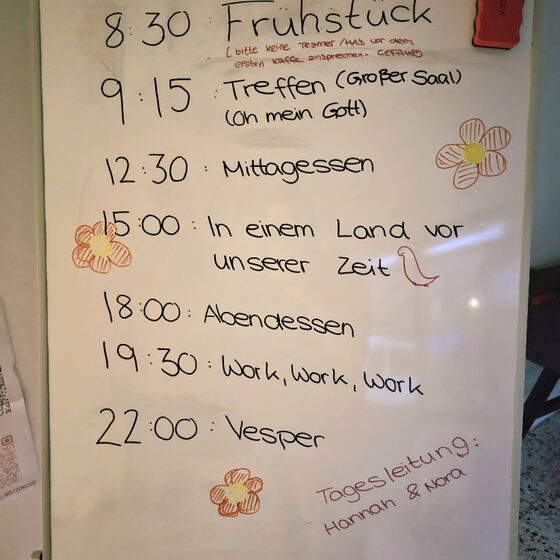 8:30 Frühstück
(bitte keine Teamer /HA's vor dem
ersten Kaffe ansprechen- GEFAHR)
9:15 : Treffen (Großer Saal)
(Oh mein Gott)
12:30 : Mittagessen
15:00 : In einem Land vor
unserer Zeit
18:00 : Abendessen
19:30 : Work, Work, Work
22:00 : Vesper
Tagesleitung:
Hannah & Nora